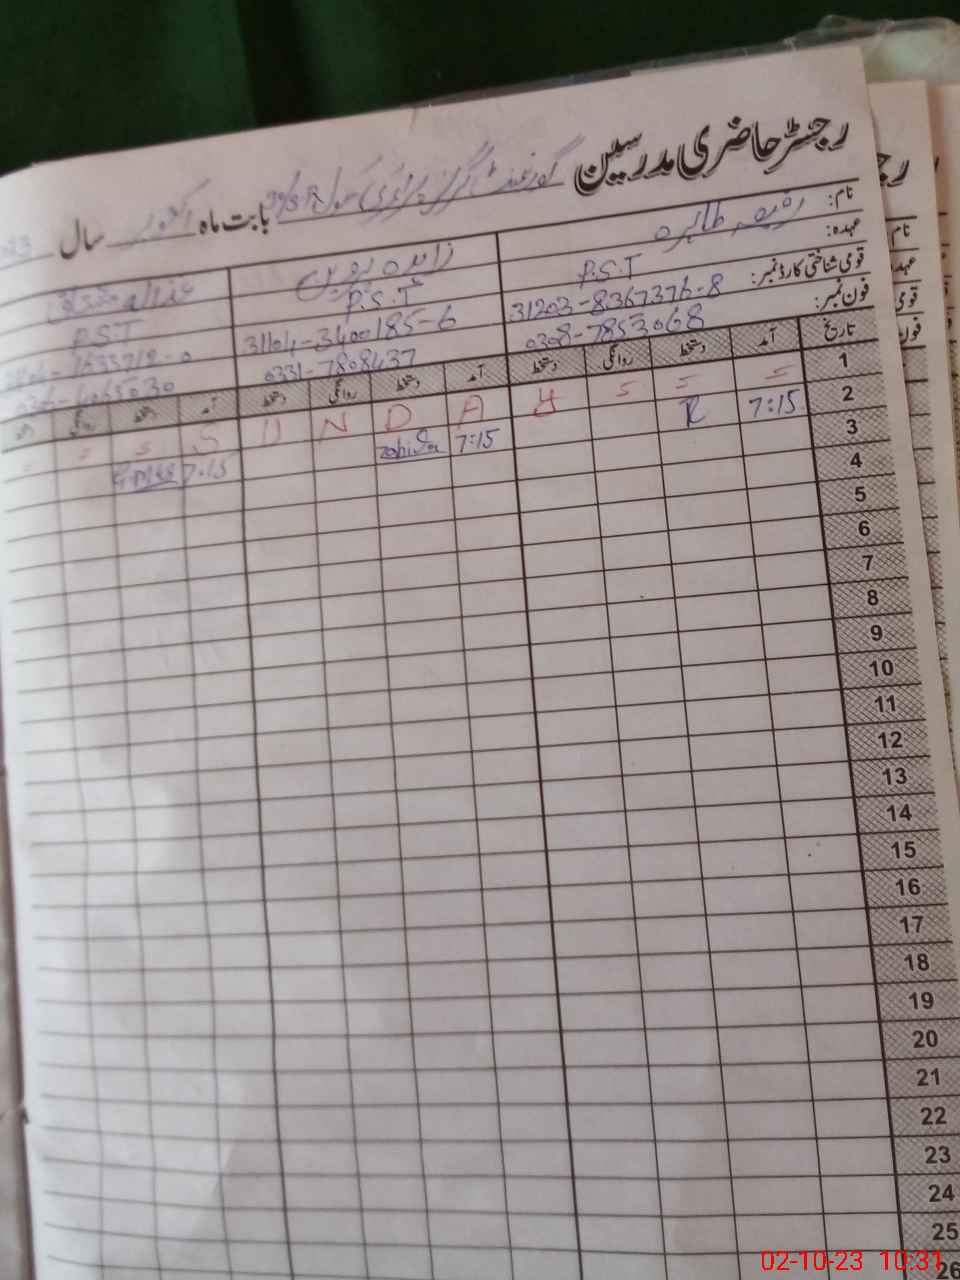 رجسٹر حاضری مدرسین گورنمنٹ گرلز پرائمری سکول بابت ماہ اکتوبر سال 23
نام: طاہرہ زاہدہ پروین
عہدہ: P.S.T P.S.T P.S.T
قومی شناختی کارڈ نمبر: 31203-8367376-8 31104-3400185-6
فون نمبر: 0308-7853068 0331-7808437
تاریخ آمد دستخط روانگی دستخط آمد دستخط روانگی دستخط آمد دستخط روانگی
1 = = S Y A D N U S = =
2 7:15 R 7:15 zahida 7:15
3
4
5
6
7
8
9
10
11
12
13
14
15
16
17
18
19
20
21
22
23
24
25
26
رجـ
نام
عہد
قومی
فون
02-10-23 10:31